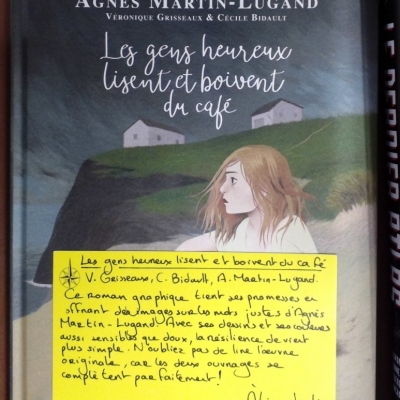 AGNÈS MARTIN-LUGAND
VÉRONIQUE GRISSEAUX & CÉCILE BIDAULT
Les gens heureux
lisent et boivent
du café
Les gens heureux lisent et boivent du café
V. Grisseaux, C. Bidault, A. Martin-Lugand.
Ce roman graphique tient ses promesses en
offrant des images sur les mots justes d'Agnès
Martin-Lugand. Avec ses dessins et ses couleurs
aussi sensibles que doux, la résilience devient
plus simple. N'oubliez pas de lire l'œuvre
originale, car les deux ouvrages se
complètent parfaitement!
LE DERNIER